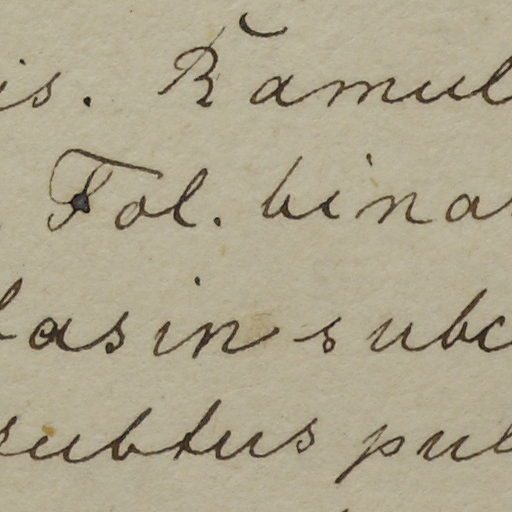 is. Ramul
Fol. bina
basin subc
subtus pul